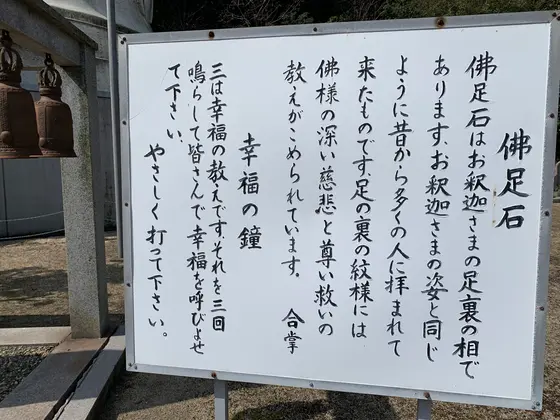 佛足石
佛足石はお釈迦さまの足裏の相で
あります、お釈迦さまの姿と同じ
ように昔から多くの人に拝まれて
来たものです、足の裏の紋様には
佛様の深い慈悲と尊い救いの
教えがこめられています。
合掌
幸福の鐘
三は幸福の教えです、それを三回
鳴らして皆さんで幸福を呼びよせ
て下さい、
やさしく打って下さい。